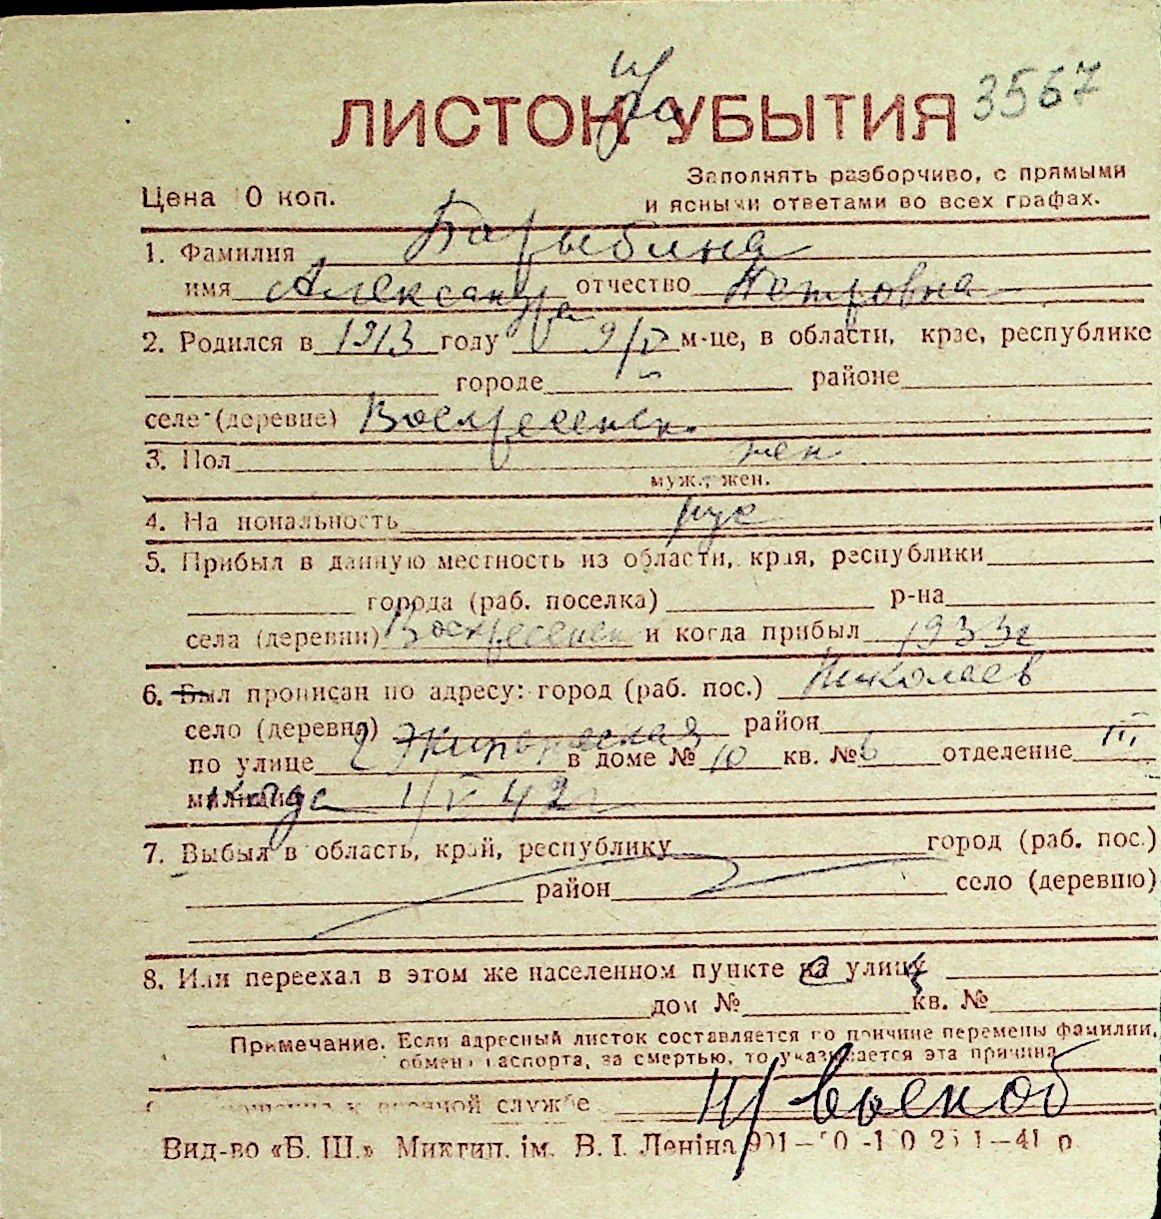 3567
ЛИСТОК УБЫТИЯ
Заполнять разборчиво, с прямыми
Цена 10 коп. и ясными ответами во всех графах.
1. Фамилия Барыбина
имя Александра отчество Петровна
2. Родился в 1913 году 9/V м-це, в области, крае, республике
городе районе
селе (деревне) Воскресенск.
3. Пол жен
муж., жен.
4. Национальность рус
5. Прибыл в данную местность из области, края, республики
города (раб. поселка) р-на
села (деревни) Воскресенск и когда прибыл 1933г
6. Был прописан по адресу: город (раб. пос.) Николаев
село (деревня) район
по улице 2 в доме № 10 кв. № 6 отделение III
милиции 1/V 42г
7. Выбыл в область, край, республику город (раб. пос.)
район село (деревню)
8. Или переехал в этом же населенном пункте на улицу
дом № кв. №
Примечание. Если адресный листок составляется по причине перемены фамилии,
обмена паспорта, за смертью, то указывается эта причина
военной службе
Вид-во «Б. Ш.» Миктип. ім. В. І. Леніна 41 р.